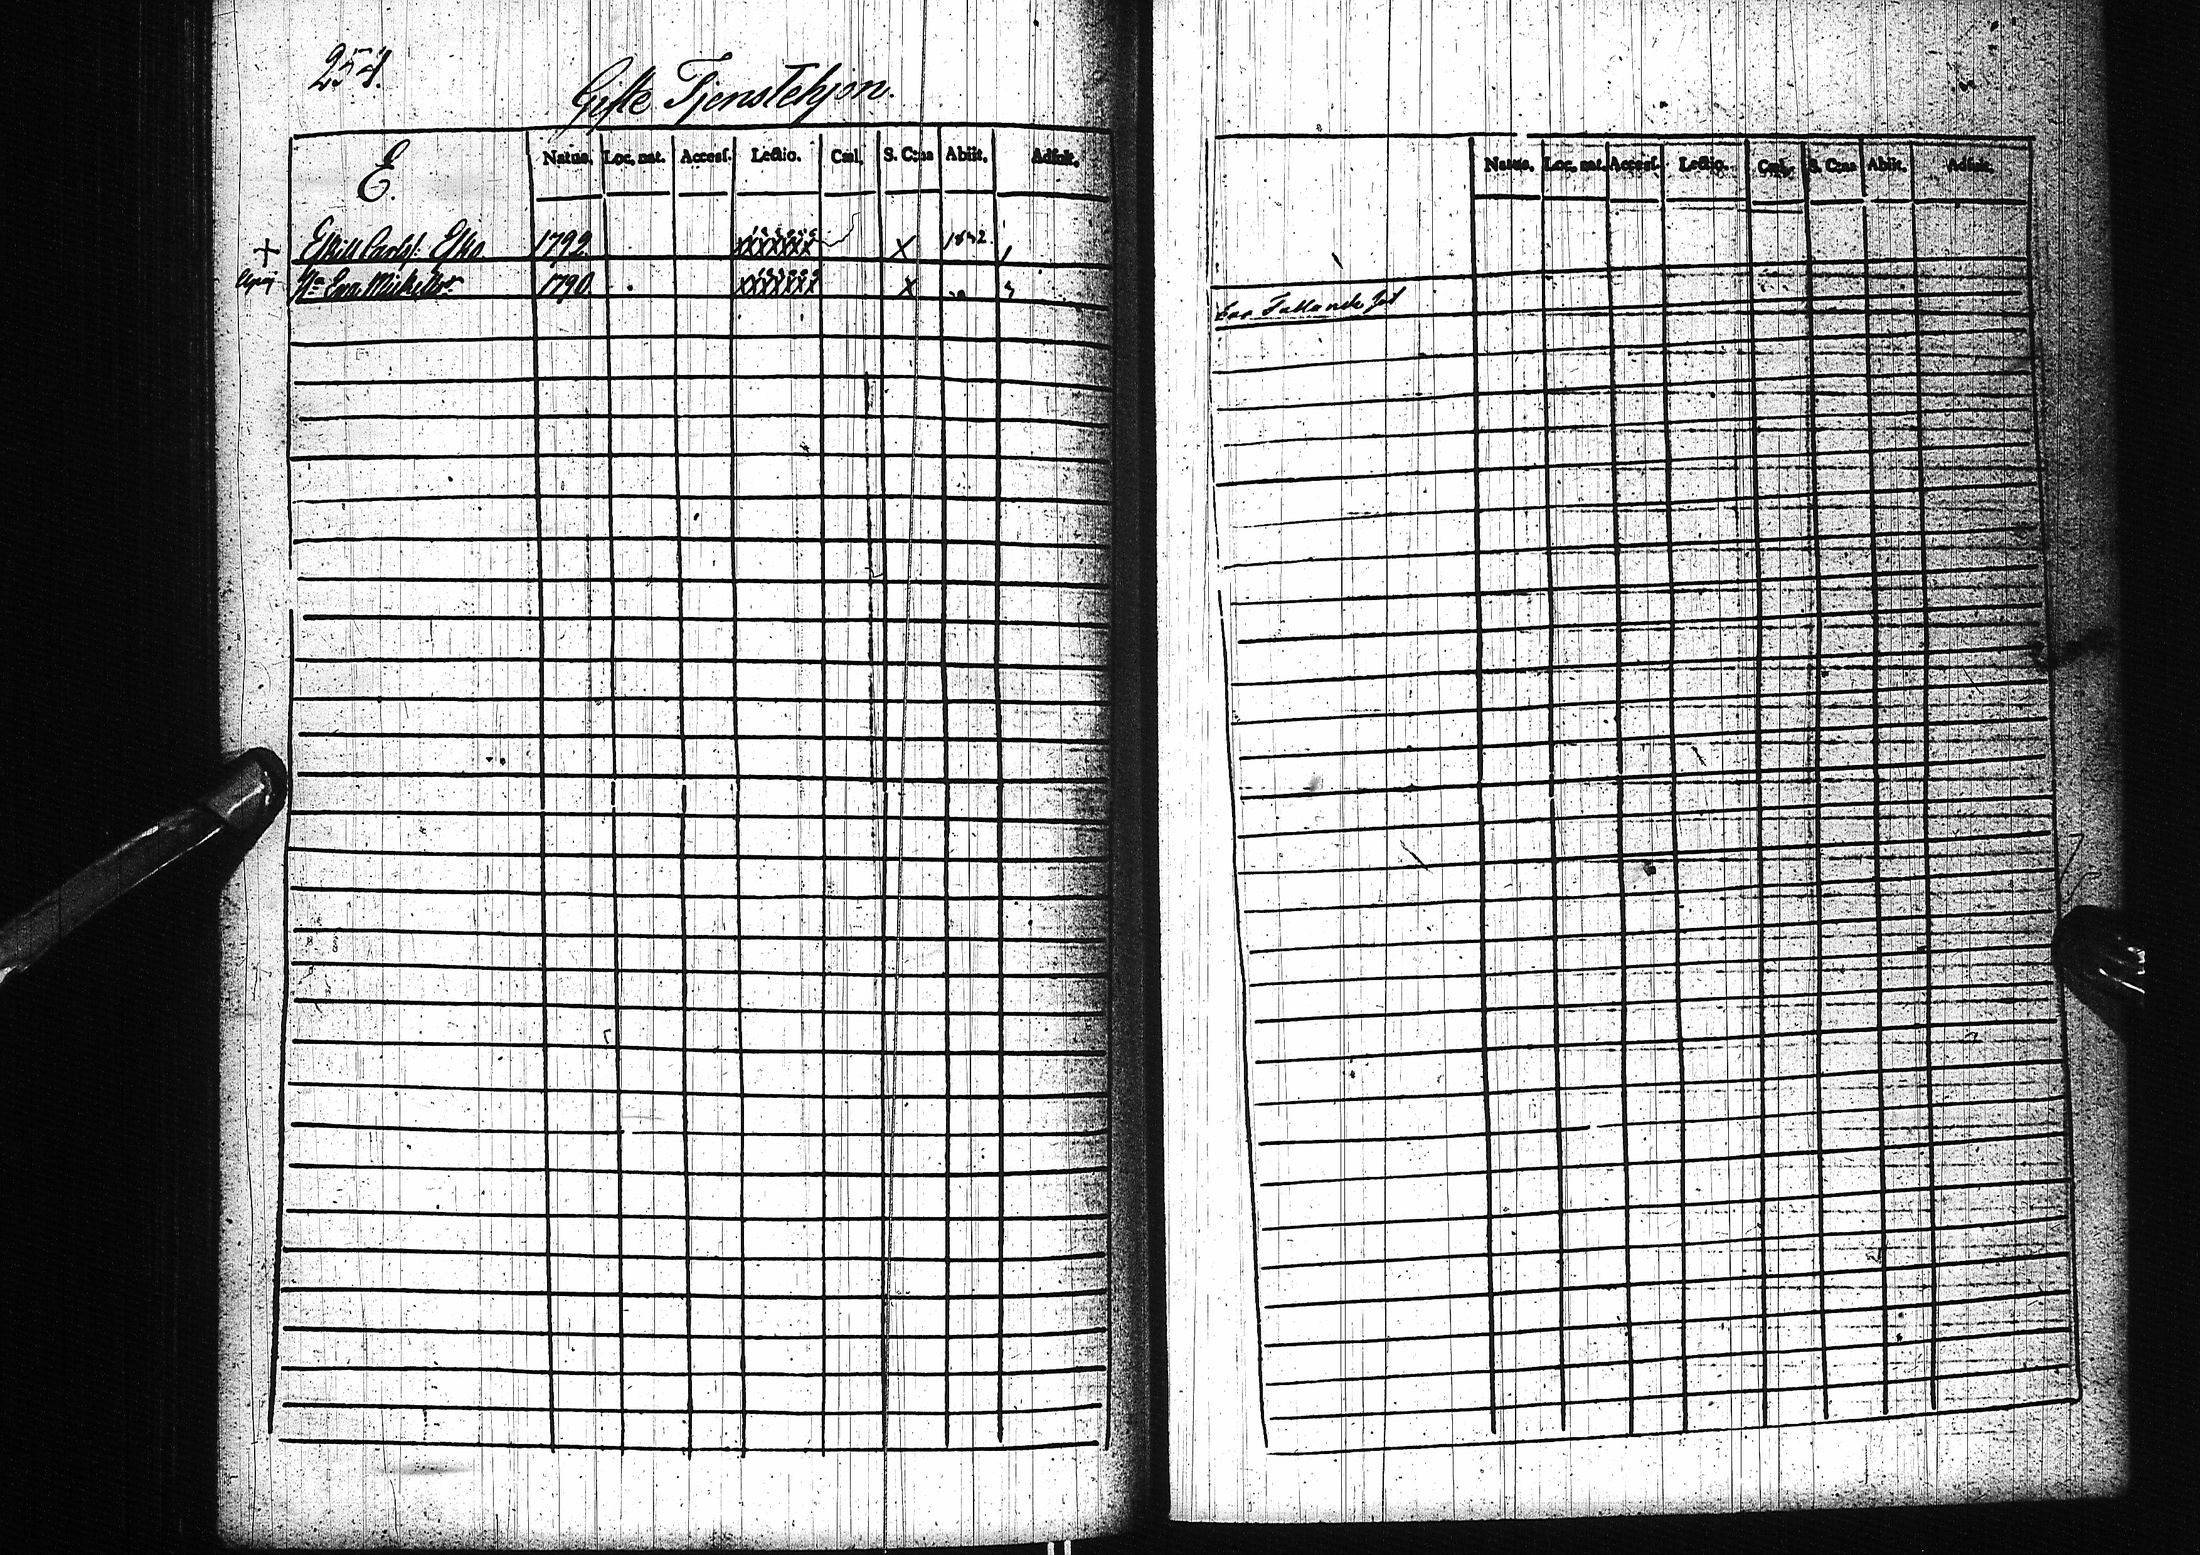 254.
Gifte Tjenstehjon.
E.
Natus. Loc. nat. Accesſ. Lectio. Cœl. S. Cœna Abiit. Adſuit.
+ Eskill Carlss. Esko 1792 xxxxxx X 1832
Hu Eva Mickelsdr 1790 xxxxxx X
Natus. Loc. nat. Accesſ. Lectio. Cœl. S. Cœna Abiit. Adſuit.